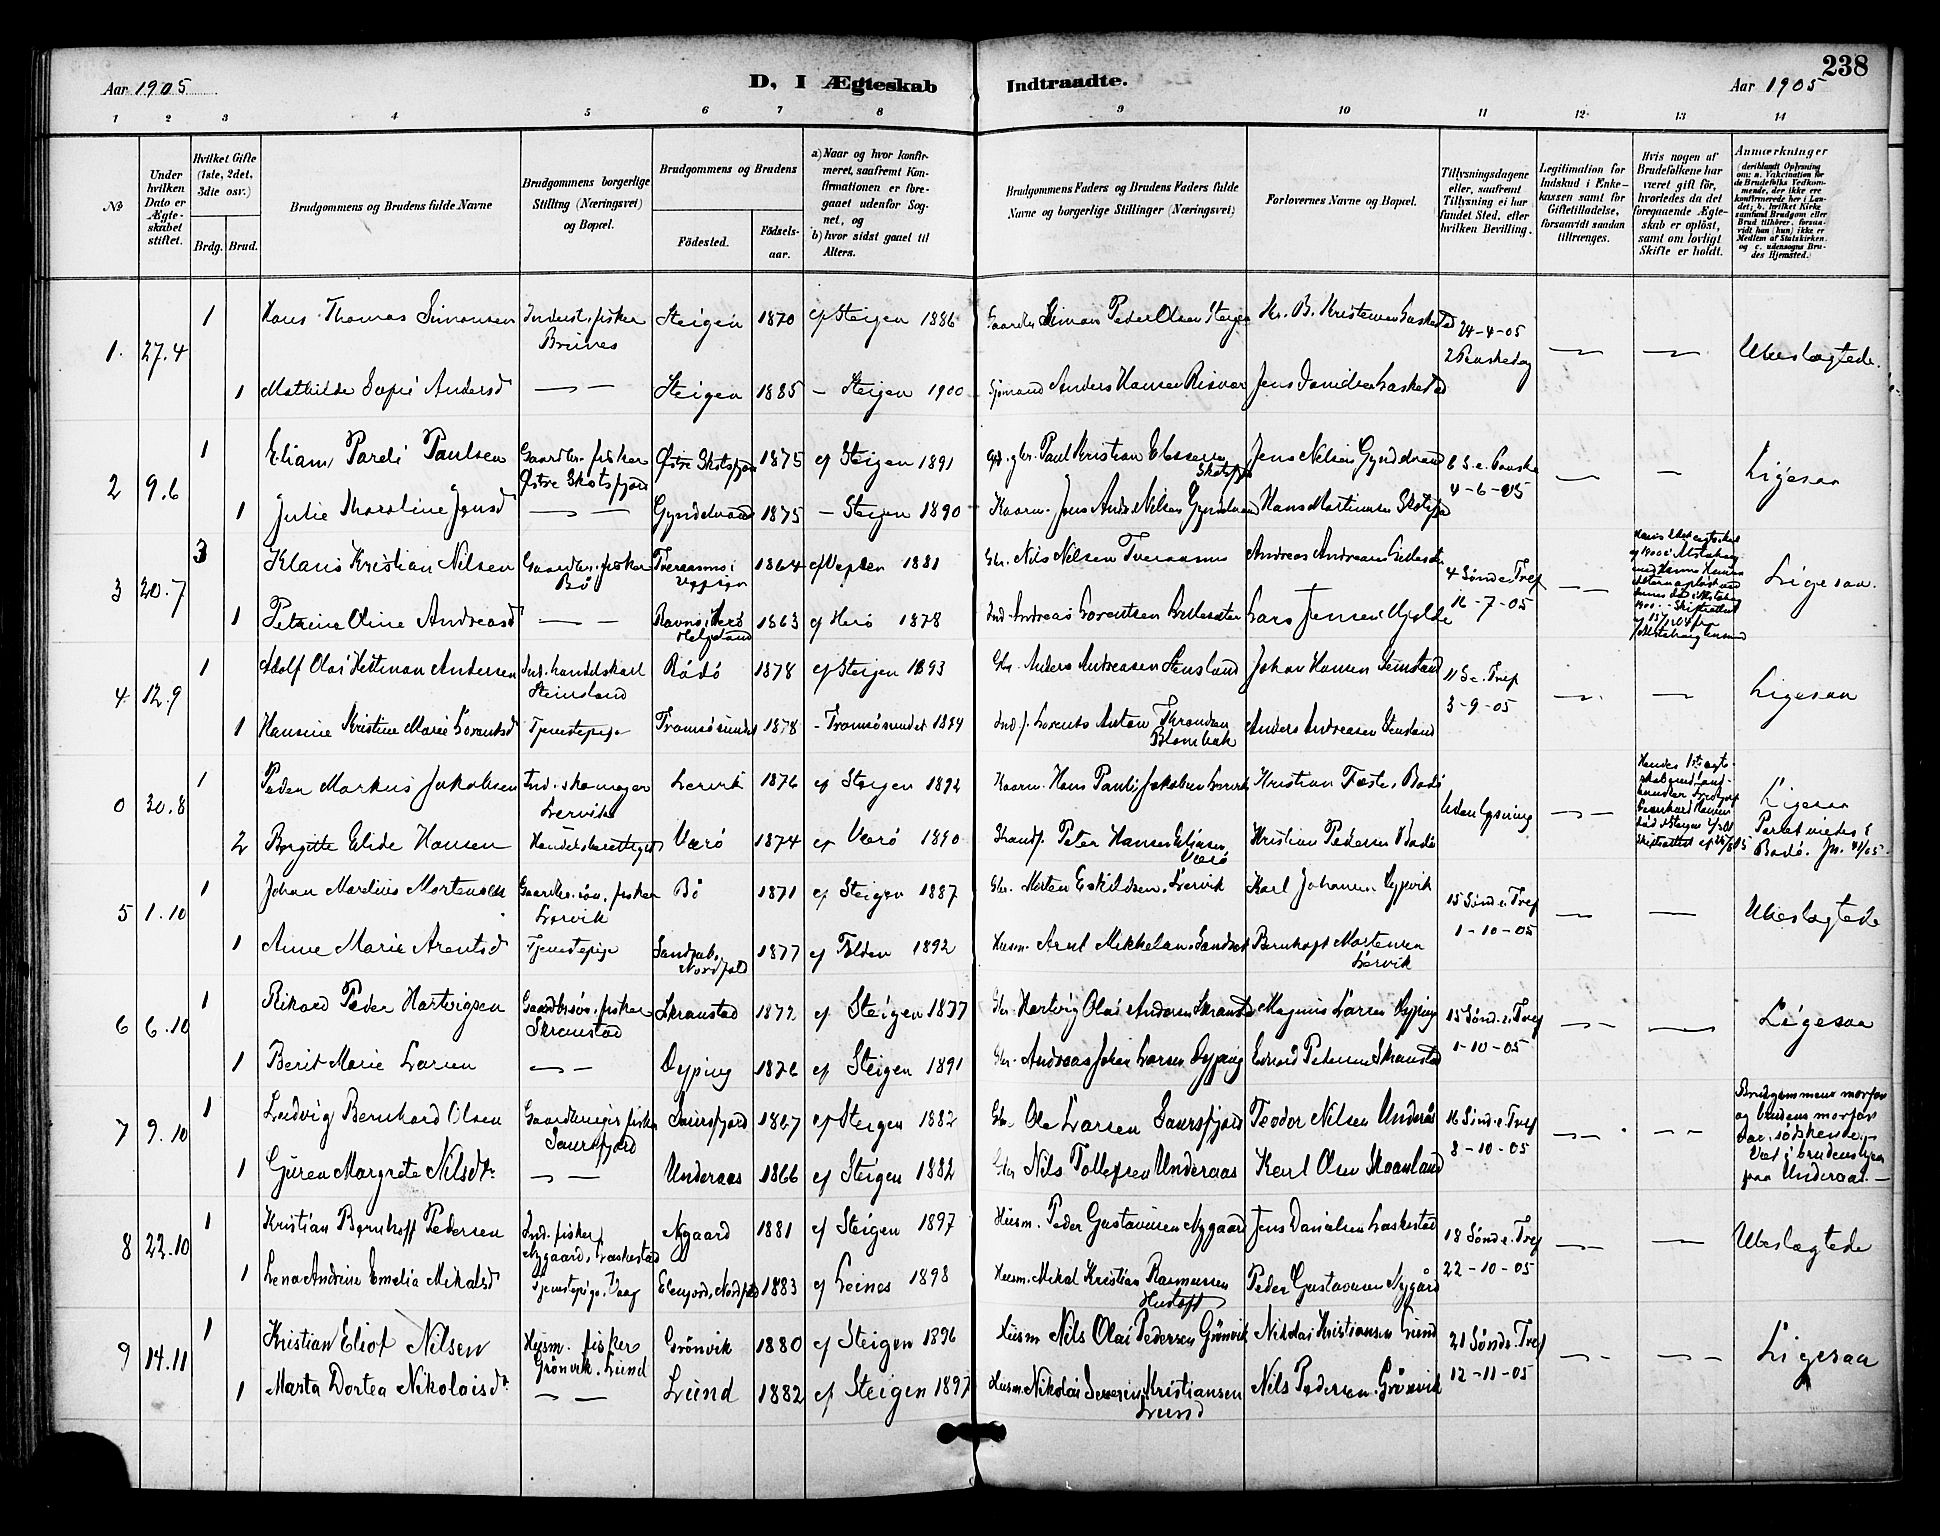 238
Aar 1905
D, I Ægteskab Indtraadte.
Aar 1905
1 2 3 4 5 6 7 8 9 10 11 12 13 14
No
Under hvilken Dato er Ægteskabet stiftet.
Hvilket Gifte (1ste, 2det, 3die osv.)
Brdg. Brud.
Brudgommens og Brudens fulde Navne
Brudgommens borgerlige Stilling (Næringsvei) og Bopæl.
Brudgommens og Brudens
Fødested. Fødsels-aar.
a) Naar og hvor konfirmeret, saafremt Konfirmationen er foregaaet udenfor Sognet, og
b) hvor sidst gaaet til Alters.
Brudgommens Faders og Brudens Faders fulde Navne og borgerlige Stillinger (Næringsvei)
Forlovernes Navne og Bopæl.
Tillysningsdagene eller, saafremt Tillysning ei har fundet Sted, efter hvilken Bevilling.
Legitimation for Indskud i Enkekassen samt for Giftetilladelse, forsaavidt saadan tiltrænges.
Hvis nogen af Brudefolkene har været gift før, hvorledes da det foregaaende Ægteskab er opløst, samt om lovligt Skifte er holdt.
Anmærkninger (deriblandt Oplysning om: a. Vakcination for de Brudefolks Vedkommende, der ikke ere konfirmerede her i Landet; b. hvilket Kirkesamfund Brudgom eller Brud tilhører, forsaavidt han (hun) ikke er Medlem af Statskirken, og c. udensogns Brudes Hjemsted.)
1. 27.4 1 Hans Thomas Simonsen Inderst. fisker Brunes Steigen 1870 cf Steigen 1886 Gaardbr. Simon Peder Olsen Steigen Kr. B. Kristensen Laskestad 24-4-05 2 Paaskedag Ubeslægtede.
1 Mathilde Sofie Andersd Steigen 1885 - Steigen 1900 Sjømand Anders Hansen Risvær Jens Danielsen Laskestad
2 9.6 1 Eliam Pareli Paulsen Gaardbr. fisker Østre Skotsfjord Østre Skotsfjord 1875 cf Steigen 1891 Paul Kristian Skotsfj. Jens Nelsen Gyndelvand 6 S. e. Paaske 4-6-05 Ligesaa
1 Julie Karoline Jensd Gyndelvand 1875 - Steigen 1890 Jens Andr. Nilsen Gyndelvand Hans Martinsen Skotsfj.
3 20.7 3 Klaus Kristian Nilsen Gaardbr. fisker Bø Tveraamo i Vefsen 1864 cf Vefsen 1881 Gbr. Nils Nilsen Tveraamo Andreas Andreasen 4 Sønd e. Tref 16-7-05 Ligesaa.
1 Petrine Oline Andreasd Havnø i Herø Helgeland 1863 cf Herø 1878 Ind. Andreas Lorentsen Lars Jensen
4 12.9 1 Adolf Olai Hetman Andersen Ind. handelskarl Steinsland Rødø 1878 cf Steigen 1893 Gbr. Anders Andreasen Stensland Johan Hansen Stensland 11 S. e. Tref 3-9-05 Ligesaa
1 Hansine Kristine Marie Lorentsd Tjenestepige Tromsøsundet 1878 - Tromsøsundet 1894 Ind. f. Lorents Anton Throndsen Anders Andreasen Stensland
0 30.8 1 Peder Markus Jakobsen Ind. skomager Lervik Lervik 1876 cf Steigen 1892 Husm. Hans Pauli Jakobsen Lervik Kristian Foster Bodø Uden lysning Ligesaa Parret viedes i Bodø. Jn. 41/05
2 Birgitte Elide Hansen Værø 1874 cf Værø 1890 Peter Hansen Værø Kristian Pedersen Bodø
5 1.10 1 Johan Martius Mortensen Gaardbr. søn, fisker Lervik Bø 1871 cf Steigen 1887 Gbr. Morten Eskildsen, Lervik Karl Johansen Dypvik 15 Sønd e. Tref 1-10-05 Ubeslægtede
1 Anne Marie Arentsd Tjenestepige Nordfold 1877 cf Folden 1892 Husm. Arnt Mikkelsen Sandset Bernhoft Mortensen Lervik
6 6.10 1 Rikard Peder Hartvigsen Gaardbr.søn, fisker Skranstad Skranstad 1872 cf Steigen 1887 Gbr. Hartvig Olai Andersen Skranstad Magnus Larsen Dyping 15 Sønd e. Tref 1-10-05 Ligesaa
1 Berit Marie Larsen Dyping 1876 cf Steigen 1891 Gbr. Andreas Johan Larsen Dyping Edvard Pedersen Skranstad
7 9.10 1 Ludvig Bernhard Olsen fisker Saursfjord Saursfjord 1867 cf Steigen 1882 Gbr. Ole Larsen Saursfjord Teodor Nilsen Underås 16 Sønd e. Tref 8-10-05 Brudgommens morfar og brudens morfar var sødskende. Viet i brudens hjem paa Underaas.
1 Guren Margrete Nilsdtr. Underaas 1866 cf Steigen 1882 Gbr Nils Tollefsen Underaas Karl Olsen Skaanland
8 22.10 1 Kristian Bernhoff Pedersen Ind. fisker Nygaard, Laskestad Nygaard 1881 cf Steigen 1897 Husm. Peder Gustavsen Nygaard Jens Danielsen Laskestad 18 Sønd e. Tref 22-10-05 Ubeslægtede
1 Lena Andrine Emelia Mikalsd Tjenestepige, Vaag Nordfold 1883 cf Leines 1898 Husm. Mikal Kristian Rasmussen Peder Gustavsen Nygård
9 14.11 1 Kristian Eliot Nilsen Husm. fisker Grønvik, Lund Grønvik 1880 cf Steigen 1896 Husm Nils Olai Pedersen Grønvik Nikolai Kristiansen Lund 21 Sønd e. Tref 12-11-05 Ligesaa
1 Marta Dortea Nikolaisdtr Lund 1882 cf Steigen 1897 Husm. Nikolai Severin Kristiansen Lund Nils Pedersen Grønvik